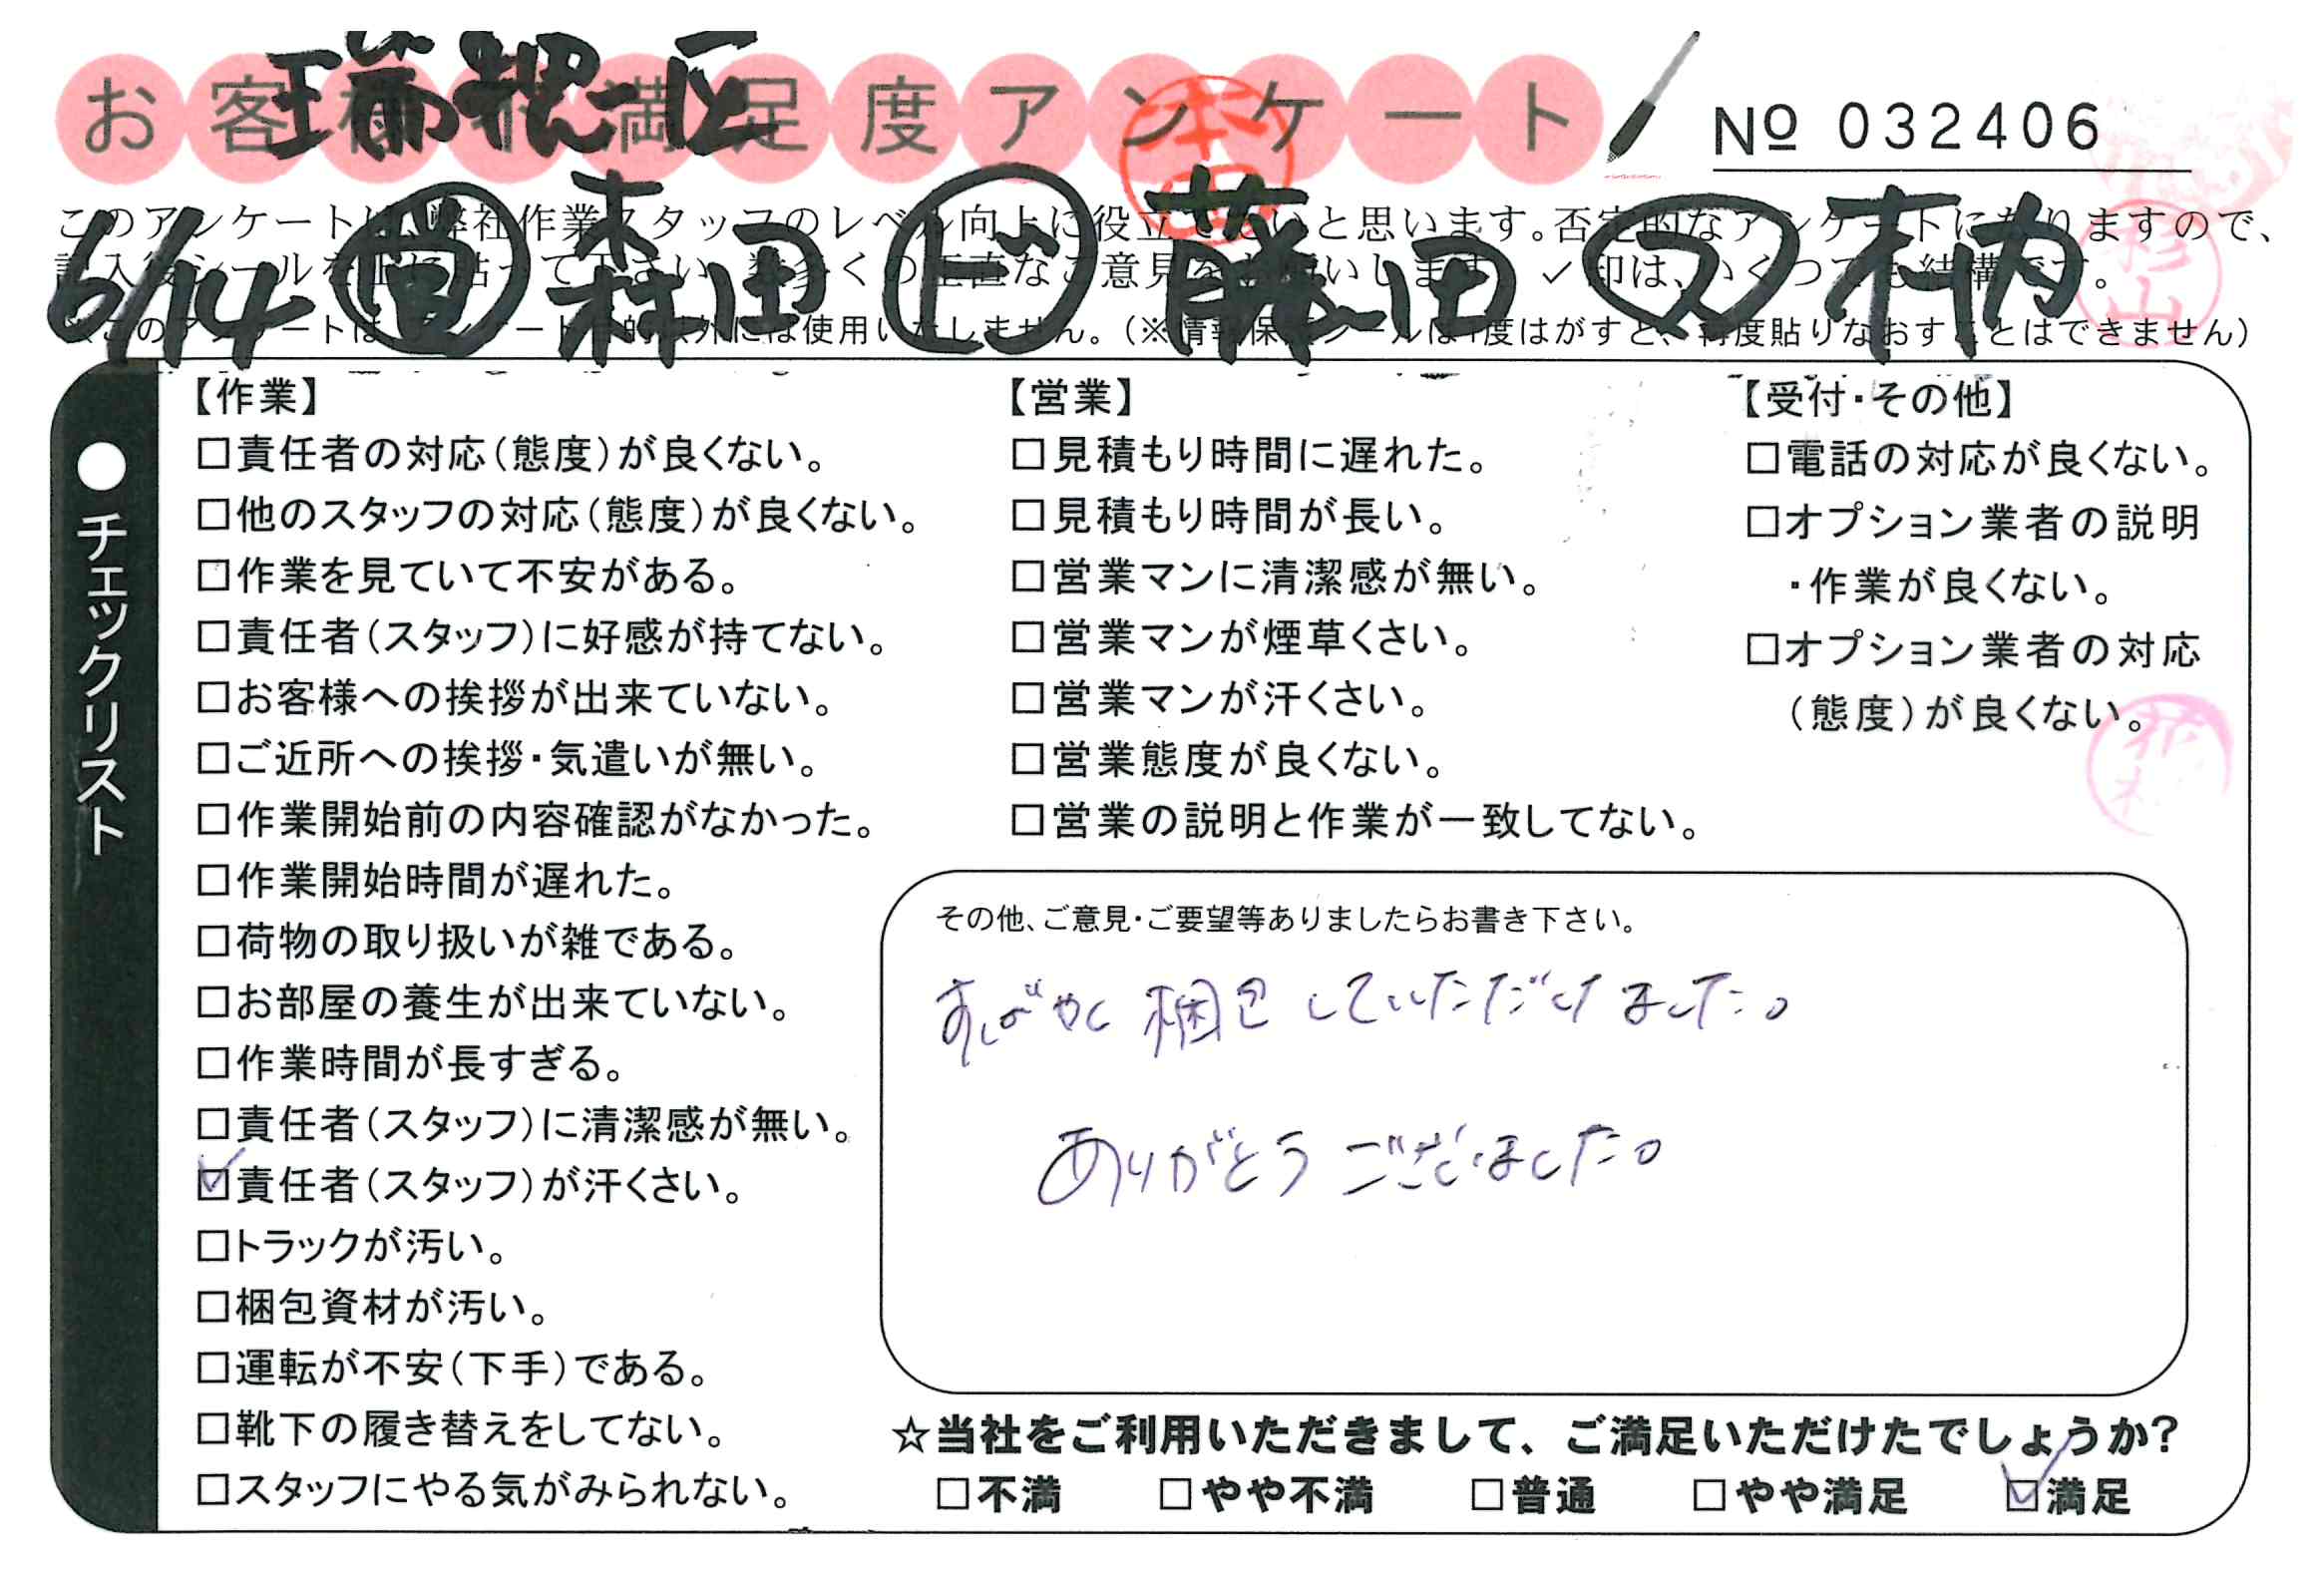 瑞穂区
お客様不満足度アンケート
№ 032406
6/14 営 森田 ビ 藤田 ス 木村内
このアンケートは、弊社作業スタッフのレベル向上に役立てたいと思います。否定的なアンケートになりますので、
記入後シールを上に貼って下さい。数多くの正直なご意見をお願いします。✓印は、いくつでも結構です。
※このアンケートは、アンケート目的以外には使用いたしません。(※情報保護シールは1度はがすと、再度貼りなおすことはできません)
本田
杉山
●チェックリスト
【作業】
□責任者の対応(態度)が良くない。
□他のスタッフの対応(態度)が良くない。
□作業を見ていて不安がある。
□責任者(スタッフ)に好感が持てない。
□お客様への挨拶が出来ていない。
□ご近所への挨拶・気遣いが無い。
□作業開始前の内容確認がなかった。
□作業開始時間が遅れた。
□荷物の取り扱いが雑である。
□お部屋の養生が出来ていない。
□作業時間が長すぎる。
□責任者(スタッフ)に清潔感が無い。
☑責任者(スタッフ)が汗くさい。
□トラックが汚い。
□梱包資材が汚い。
□運転が不安(下手)である。
□靴下の履き替えをしてない。
□スタッフにやる気がみられない。
【営業】
□見積もり時間に遅れた。
□見積もり時間が長い。
□営業マンに清潔感が無い。
□営業マンが煙草くさい。
□営業マンが汗くさい。
□営業態度が良くない。
□営業の説明と作業が一致してない。
【受付・その他】
□電話の対応が良くない。
□オプション業者の説明
・作業が良くない。
□オプション業者の対応
(態度)が良くない。
その他、ご意見・ご要望等ありましたらお書き下さい。
すばやく梱包していただけました。
ありがとうございました。
☆当社をご利用いただきまして、ご満足いただけたでしょうか?
□不満 □やや不満 □普通 □やや満足 ☑満足